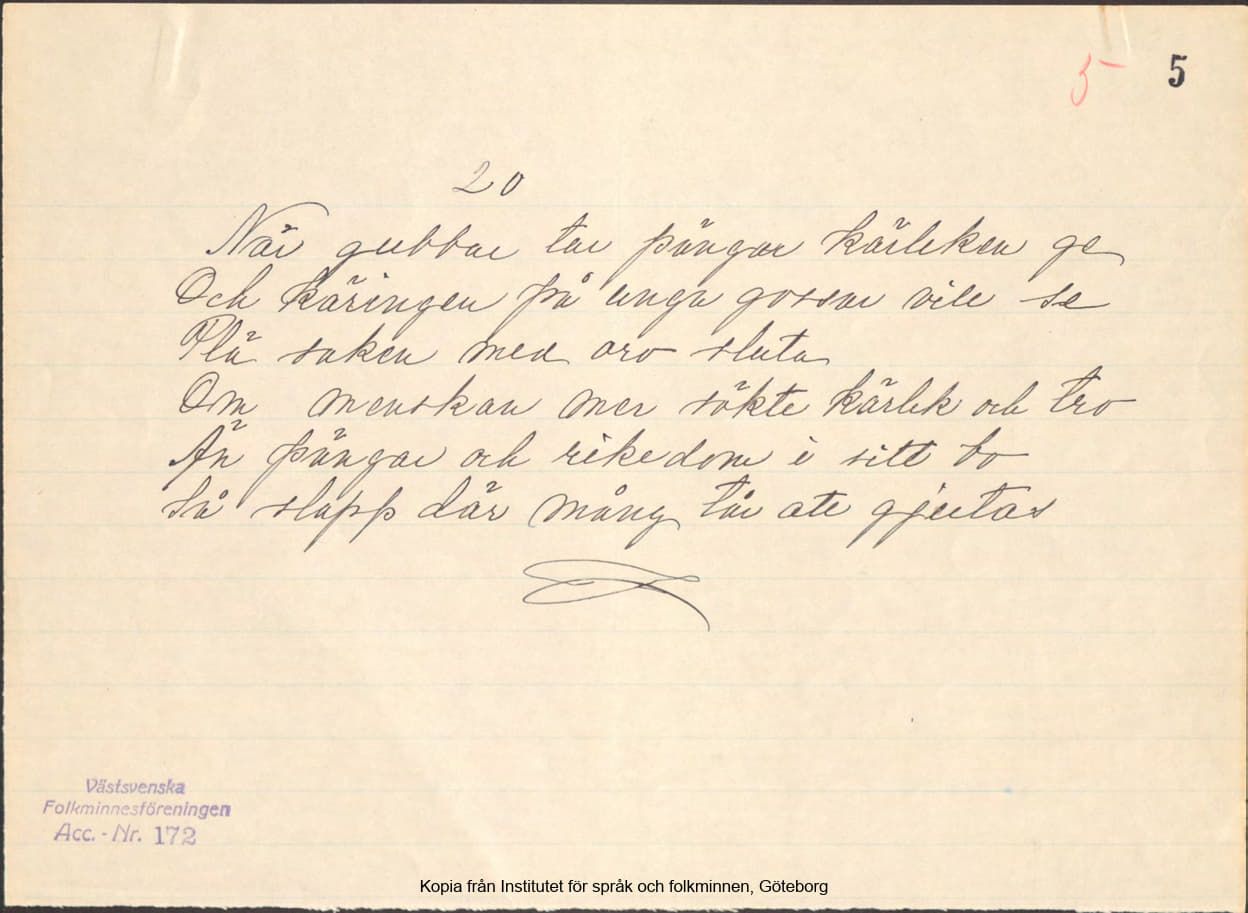 5 5
20
När gubbar tar pängar kärleken ge
Och käringen på unga gossar vile se
Plä saken med oro sluta
Om menskan mer sökte kärlek och tro
Än pängar och rikedom i sitt bo
Så slapp där mång tår ate gjutas
Västsvenska
Folkminnesföreningen
Acc. - Nr. 172
Kopia från Institutet för språk och folkminnen, Göteborg